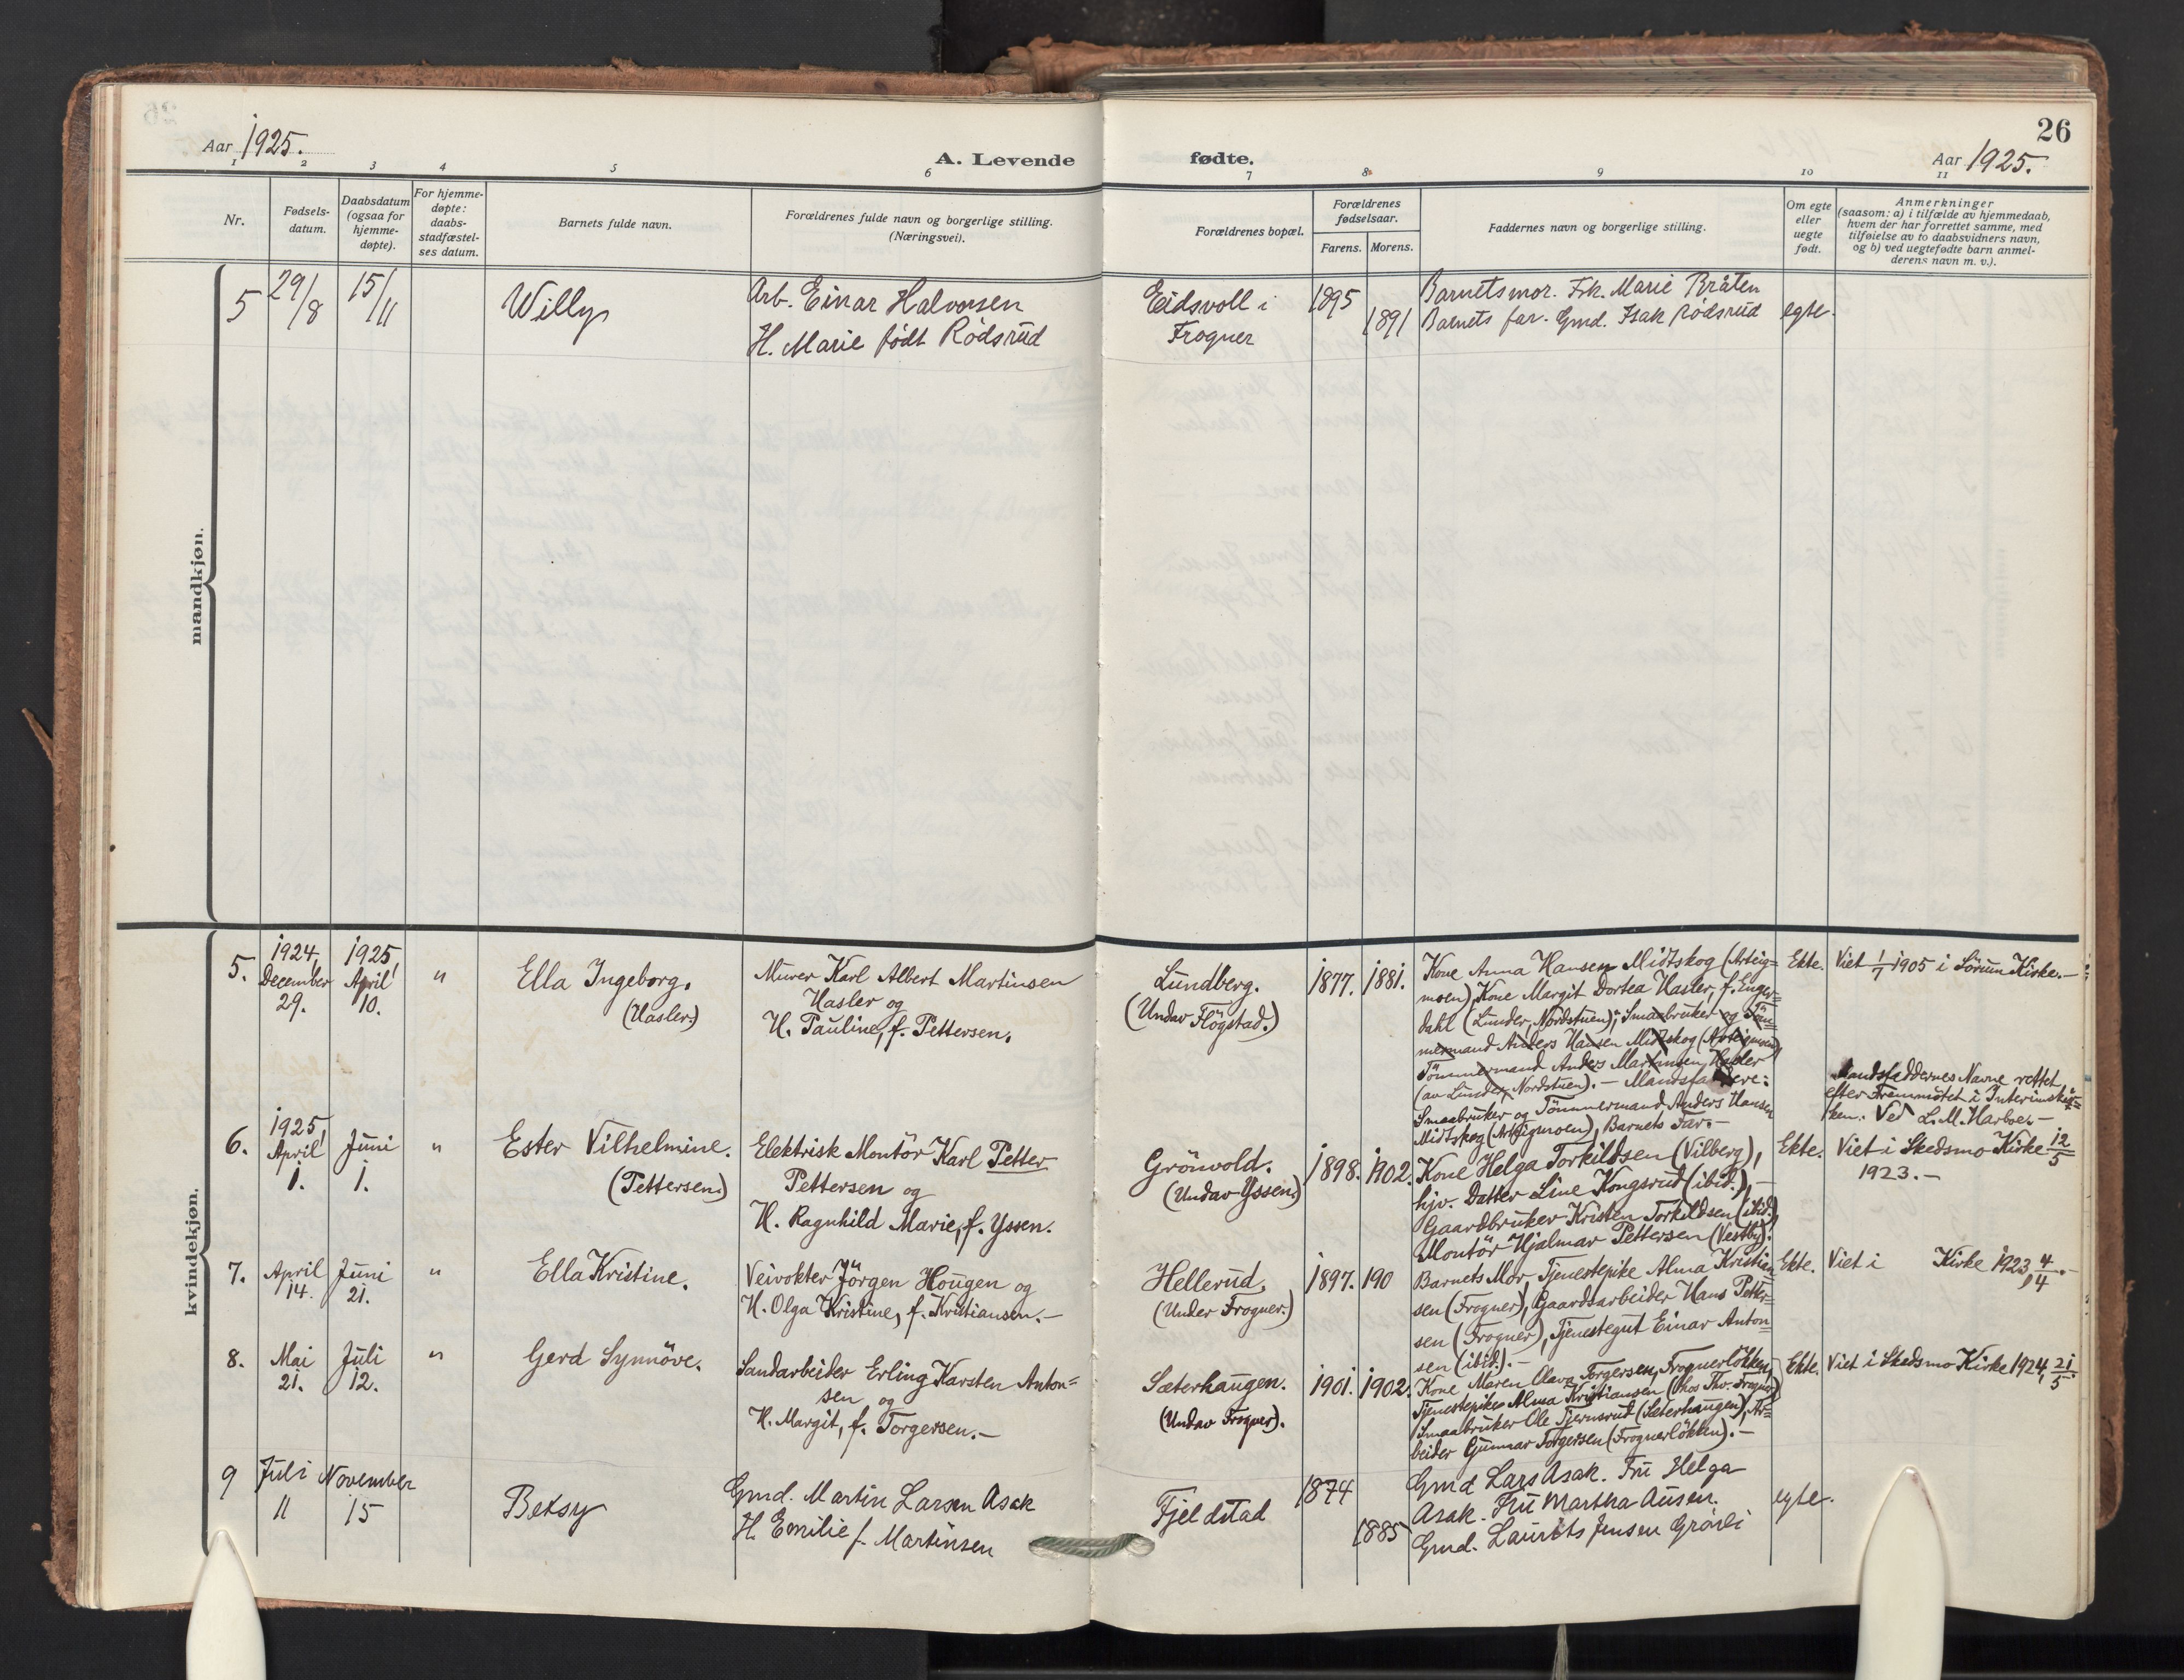 26
Aar 1925.
A. Levende
fødte.
Aar 1925.
1 2 3 4 5 6 7 8 9 10 11
Nr.
Fødsels-
datum.
Daabsdatum
(ogsaa for
hjemme-
døpte).
For hjemme-
døpte:
daabs-
stadfæstel-
ses datum.
Barnets fulde navn.
Forældrenes fulde navn og borgerlige stilling.
(Næringsvei).
Forældrenes bopæl.
Forældrenes
fødselsaar.
Farens. Morens.
Faddernes navn og borgerlige stilling.
Om egte
eller
uegte
født.
Anmerkninger
(saasom: a) i tilfælde av hjemmedaab,
hvem der har forrettet samme, med
tilføielse av to daabsvidners navn,
og b) ved uegtefødte barn anmel-
derens navn m. v.).
mandkjøn.
5
29/8
15/11
Willy
Arb. Einar Halvorsen
H. Marie født Rødsrud
Eidsvoll i
Frogner
1895
1891
Barnets mor. Frk. Marie Bråten
Barnets far. Gmd. Isak Rødsrud
egte.
kvindekjøn.
5.
1924,
December
29.
1925,
April
10.
"
Ella Ingeborg.
(Hasler.)
Murer Karl Albert Martinsen
Hasler og
H. Pauline, f. Pettersen.
Lundberg.
(Undav Flögstad.)
1877. 1881.
Kone Anna Hansen Midtskog (Arteig=
moen), Kone Margit Dortea Hasler, f. Enger=
dahl (Lunder, Nordstuen); Smaabruker og Töm=
mermand Anders Hansen Midtskog (Arteigmoen),
Tömmermand Anders Martinsen Hasler
(av Lunder, Nordstuen). - Mandsfaddere:
Smaabruker og Tömmermand Anders Hansen
Midtskog (Arteigmoen), Barnets Far. -
Ekte.
Viet 1/7 1905 i Sörum Kirke. -
Mandsfaddernes Navne rettet
efter Fremmötet i Interimskir=
ken. Ved L. M. Harboe. -
6.
1925,
April
1.
Juni
1.
"
Ester Vilhelmine.
(Pettersen.)
Elektrisk Montör Karl Petter
Pettersen og
H. Ragnhild Marie, f. Yssen.
Grönvold.
(Undav Yssen.)
1898. 1902.
Kone Helga Torkildsen (Vilberg),
hjv. Datter Line Kongsrud (ibid.), -
Gaardbruker Kristen Torkildsen (ibid.),
Montör Hjalmar Pettersen (Vestby).
Ekte.
Viet i Skedsmo Kirke 12/5
1923. -
7.
April
14.
Juni
21.
"
Ella Kristine.
Veivokter Jörgen Hougen og
H. Olga Kristine, f. Kristiansen. -
Hellerud.
(Under Frogner.)
1897. 190
Barnets Mor, Tjenestepike Alma Kristian
sen (Frogner), Gaardsarbeider Hans Petter=
sen (Frogner), Tjenestegut Einar Anton=
sen (ibid.). -
Ekte.
Viet i Kirke 1923, 4/4. -
8.
Mai
21.
Juli
12.
"
Gerd Synnöve.
Sandarbeider Erling Karsten Anton=
sen og
H. Margit, f. Torgersen. -
Sæterhaugen.
(Undav Frogner).
1901. 1902.
Kone Maren Olava Torgersen, Frognerlökken,
Tjenestepike Alma Kristiansen (hos Thv. Frogner)
Smaabruker Ole Tjernsrud (Sæterhaugen), Ar=
beider Gunnar Torgersen (Frognerlökken). -
Ekte.
Viet i Skedsmo Kirke 1924, 21/5.
9
Juli
11
November
15
Betsy
Gmd. Martin Larsen Asak
H. Emilie f. Martinsen
Fjeldstad
1874
1885
Gmd Lars Asak. Fru Helga
Asak. Fru Martha Ausen.
Gmd. Laurits Jensen
egte.